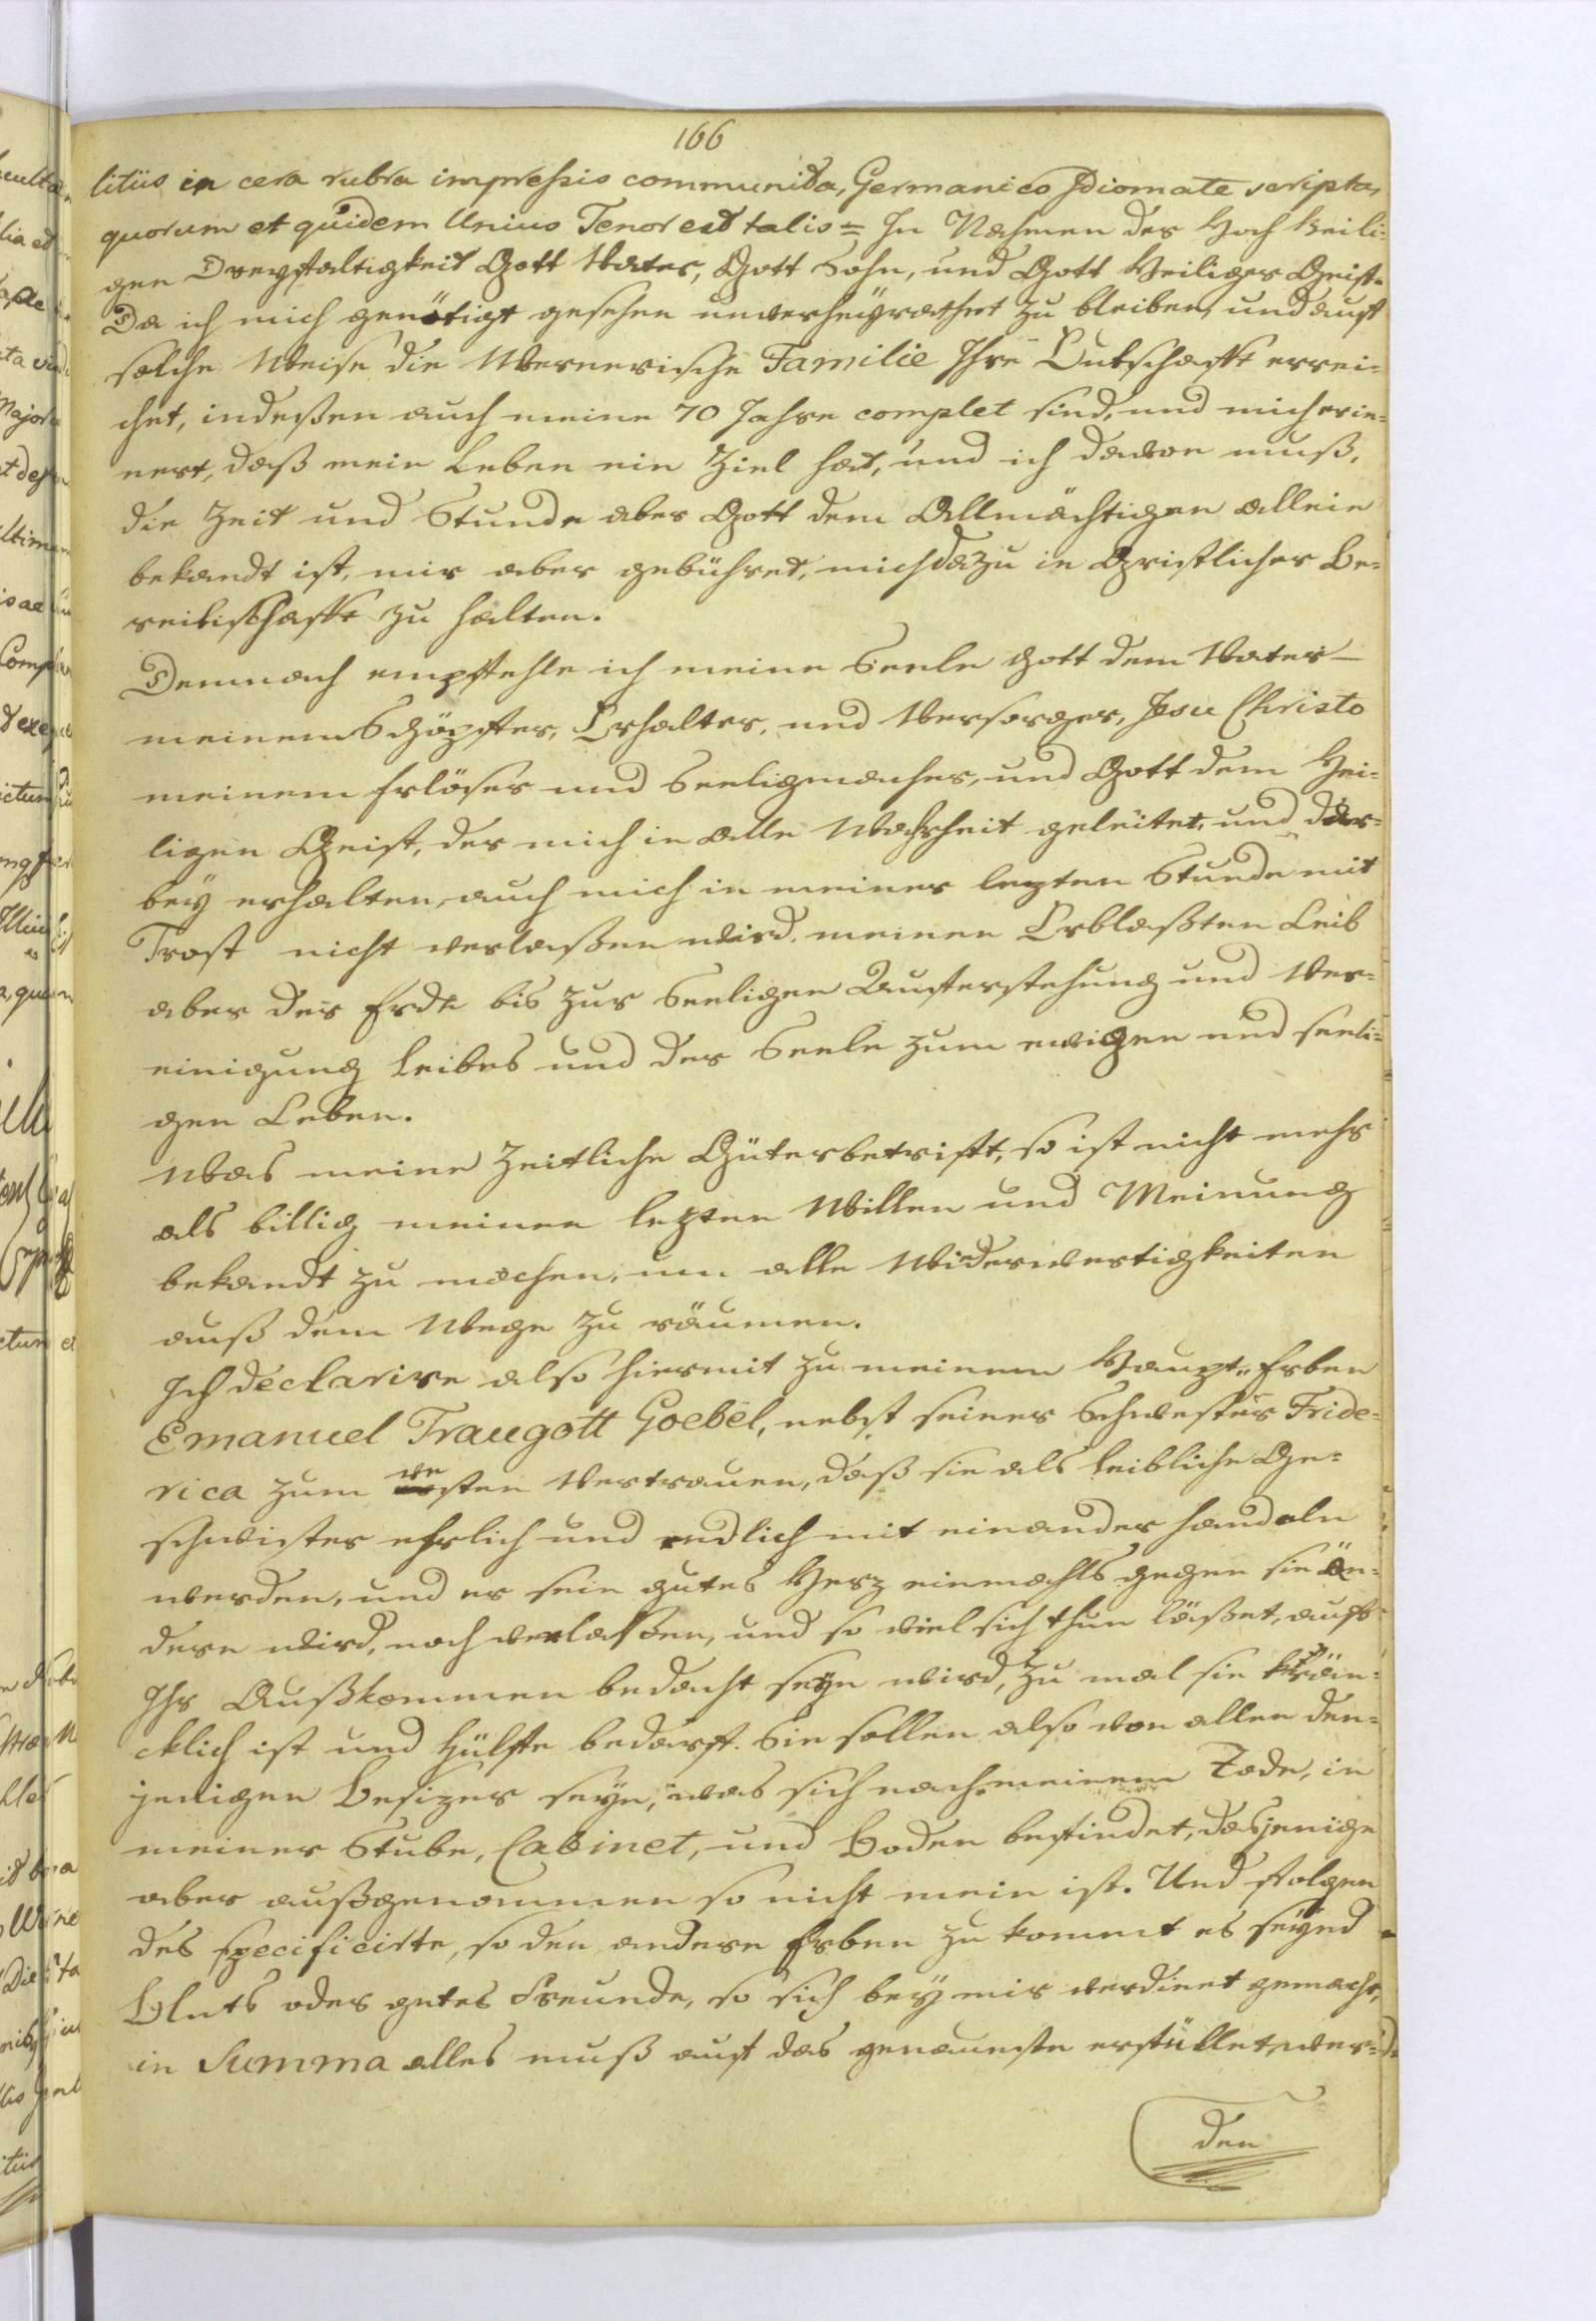 166
litius in cera rubra impressis communita, Germanico Idiomate scripta,
quorum et quidem Unius Tenor est talis = In Nahmen der Hoch Heili=
gen Dreyfaltigkeit Gott Vater, Gott Sohn, und Gott Heiliger Geist.
Da ich mich genötigt gesehen unverheyrathet zu bleiben, und auff
solche Weise die Wernerische Familie Ihre Endschafft errei=
chet, indeßen auch meine 70 Jahre complet sind, und mich erin=
nert, daß mein Leben ein Ziel hat, und ich davon muß,
die Zeit und Stunde aber Gott dem Allmächtigen allein
bekandt ist, mir aber gebühret, mich dazu in Christlicher Be=
reitschafft zu halten.
Demnach empffehle ich meine Seele Gott dem Vater
meinem Schöpffer, Erhalter, und Versorger, Jesu Christo
meinem Erlöser und Seeligmacher, und Gott dem Hei=
ligen Geist, der mich in alle Wahrheit geleitet, und dar=
bey erhalten, auch mich in meiner lezten Stunde mit
Trost nicht verlaßen wird. meinen Erblaßten Leib
aber der Erde bis zur Seeligen Aufferstehung und Ver=
einigung Leibes und der Seele zum ewigen und seeli=
gen Leben.
Was meine Zeitliche Güter betrifft, so ist nicht mehr
als billig meinen lezten Willen und Meinung
bekandt zu machen, um alle Widerwertigkeiten
auß dem Wege zu räumen.
Ich declarire also hiermit zu meinem Haupt=Erben
Emanuel Traugott Goebel, nebst seiner Schwester Fride=
rica zum vesten Vertrauen, daß sie als leibliche Ge=
schwister ehrlich und redlich mit einander handeln
werden, und er sein gutes Herz niemahls gegen sie än=
dern wird, noch verlassen, und so viel sich thun läßet, auff
Ihr Außkommen bedacht seyn wird, zu mal sie krän=
cklich ist und Hülffe bedarff. Sie sollen also von allen den=
jenigen Besizer seyn, was sich nach meinem Tode, in
meiner Stube, Cabinet, und Boden beffindet, dasjenige
aber außgenommen so nicht mein ist. Und ffolgen
des specificirte, so den andern Erben zu kommt es seynd
Bluts oder gutes Freunde, so sich bey mir verdinet gemacht,
in Summa alles muß auff das genaueste erfüllet wer=
den